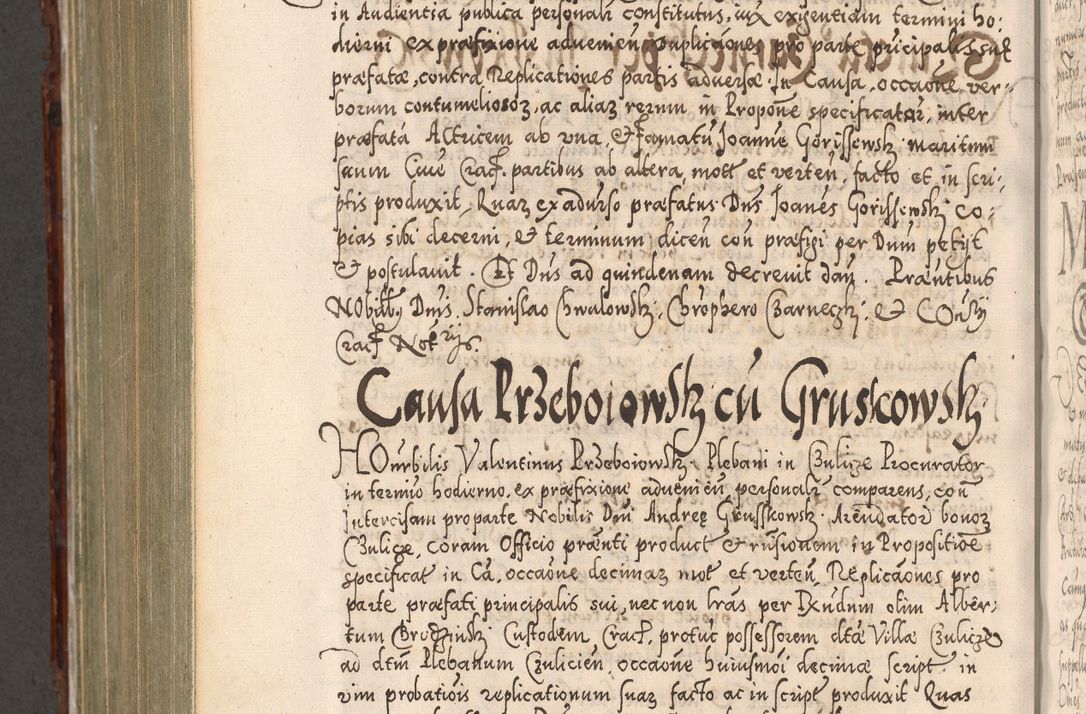 in Audientia publica personalr constitutus, iux exigentiam termini ho-
dierni ex præfixione advenien Duplicãones pro parte pricipalis suæ
præfatæ, contra Replicationes partis adversæ in Causa, occaõne ver-
borum contumeliosoꝝ, ac aliaꝝ rerum in Propõne specificatar, inter
præfatã Actricem ab vna, & Famatũ Joannẽ Gorissewsk maritum
suum Ciuẽ Craĉ. partibus ab altera, mott et verteñ, facto et in scri-
ptis produxit, Quaꝝ ex aduerso præfatus Dñs Joañes Gorissewsk co-
pias sibi decerni, & terminum diceñ con præfigi per Dnũm petijt
& postulauit. Et Dñs ad quindenam decreuit dañ. Præntibus
Nobilib9 Dnis Stanislao Chwalowsk, Chrõphero Czarneczk, & Cons̃ij
Craĉ Notrijs.
Causa Przeboiowsk cũ Gruskowsk
HOnrbilis Valentinus Przeboiowsk Plebani in Czulice Procurator
in termiõ hodierno, ex præfixione adueniẽn personalr comparens, con
Intercisam pro parte Nobilis Dni Andreę Grusskowsk Arendator bonoꝝ
Czulice, coram Officio prænti product & in Propositiõe
specificat in Cã, occaõne decimaꝝ mot et verteñ, Replicãones pro
parte præfati principalis sui, nec non lrãs per Rndum olim Alber-
tum Brudzinsk Custodem Craĉ, protũc possessorem dtæ Villæ Czulice
ad dtm Plebanum Czulicien, occaõne huiusmõi decimæ script in
vim probatiõis replicationum suaꝝ facto ac in script produxit Quas